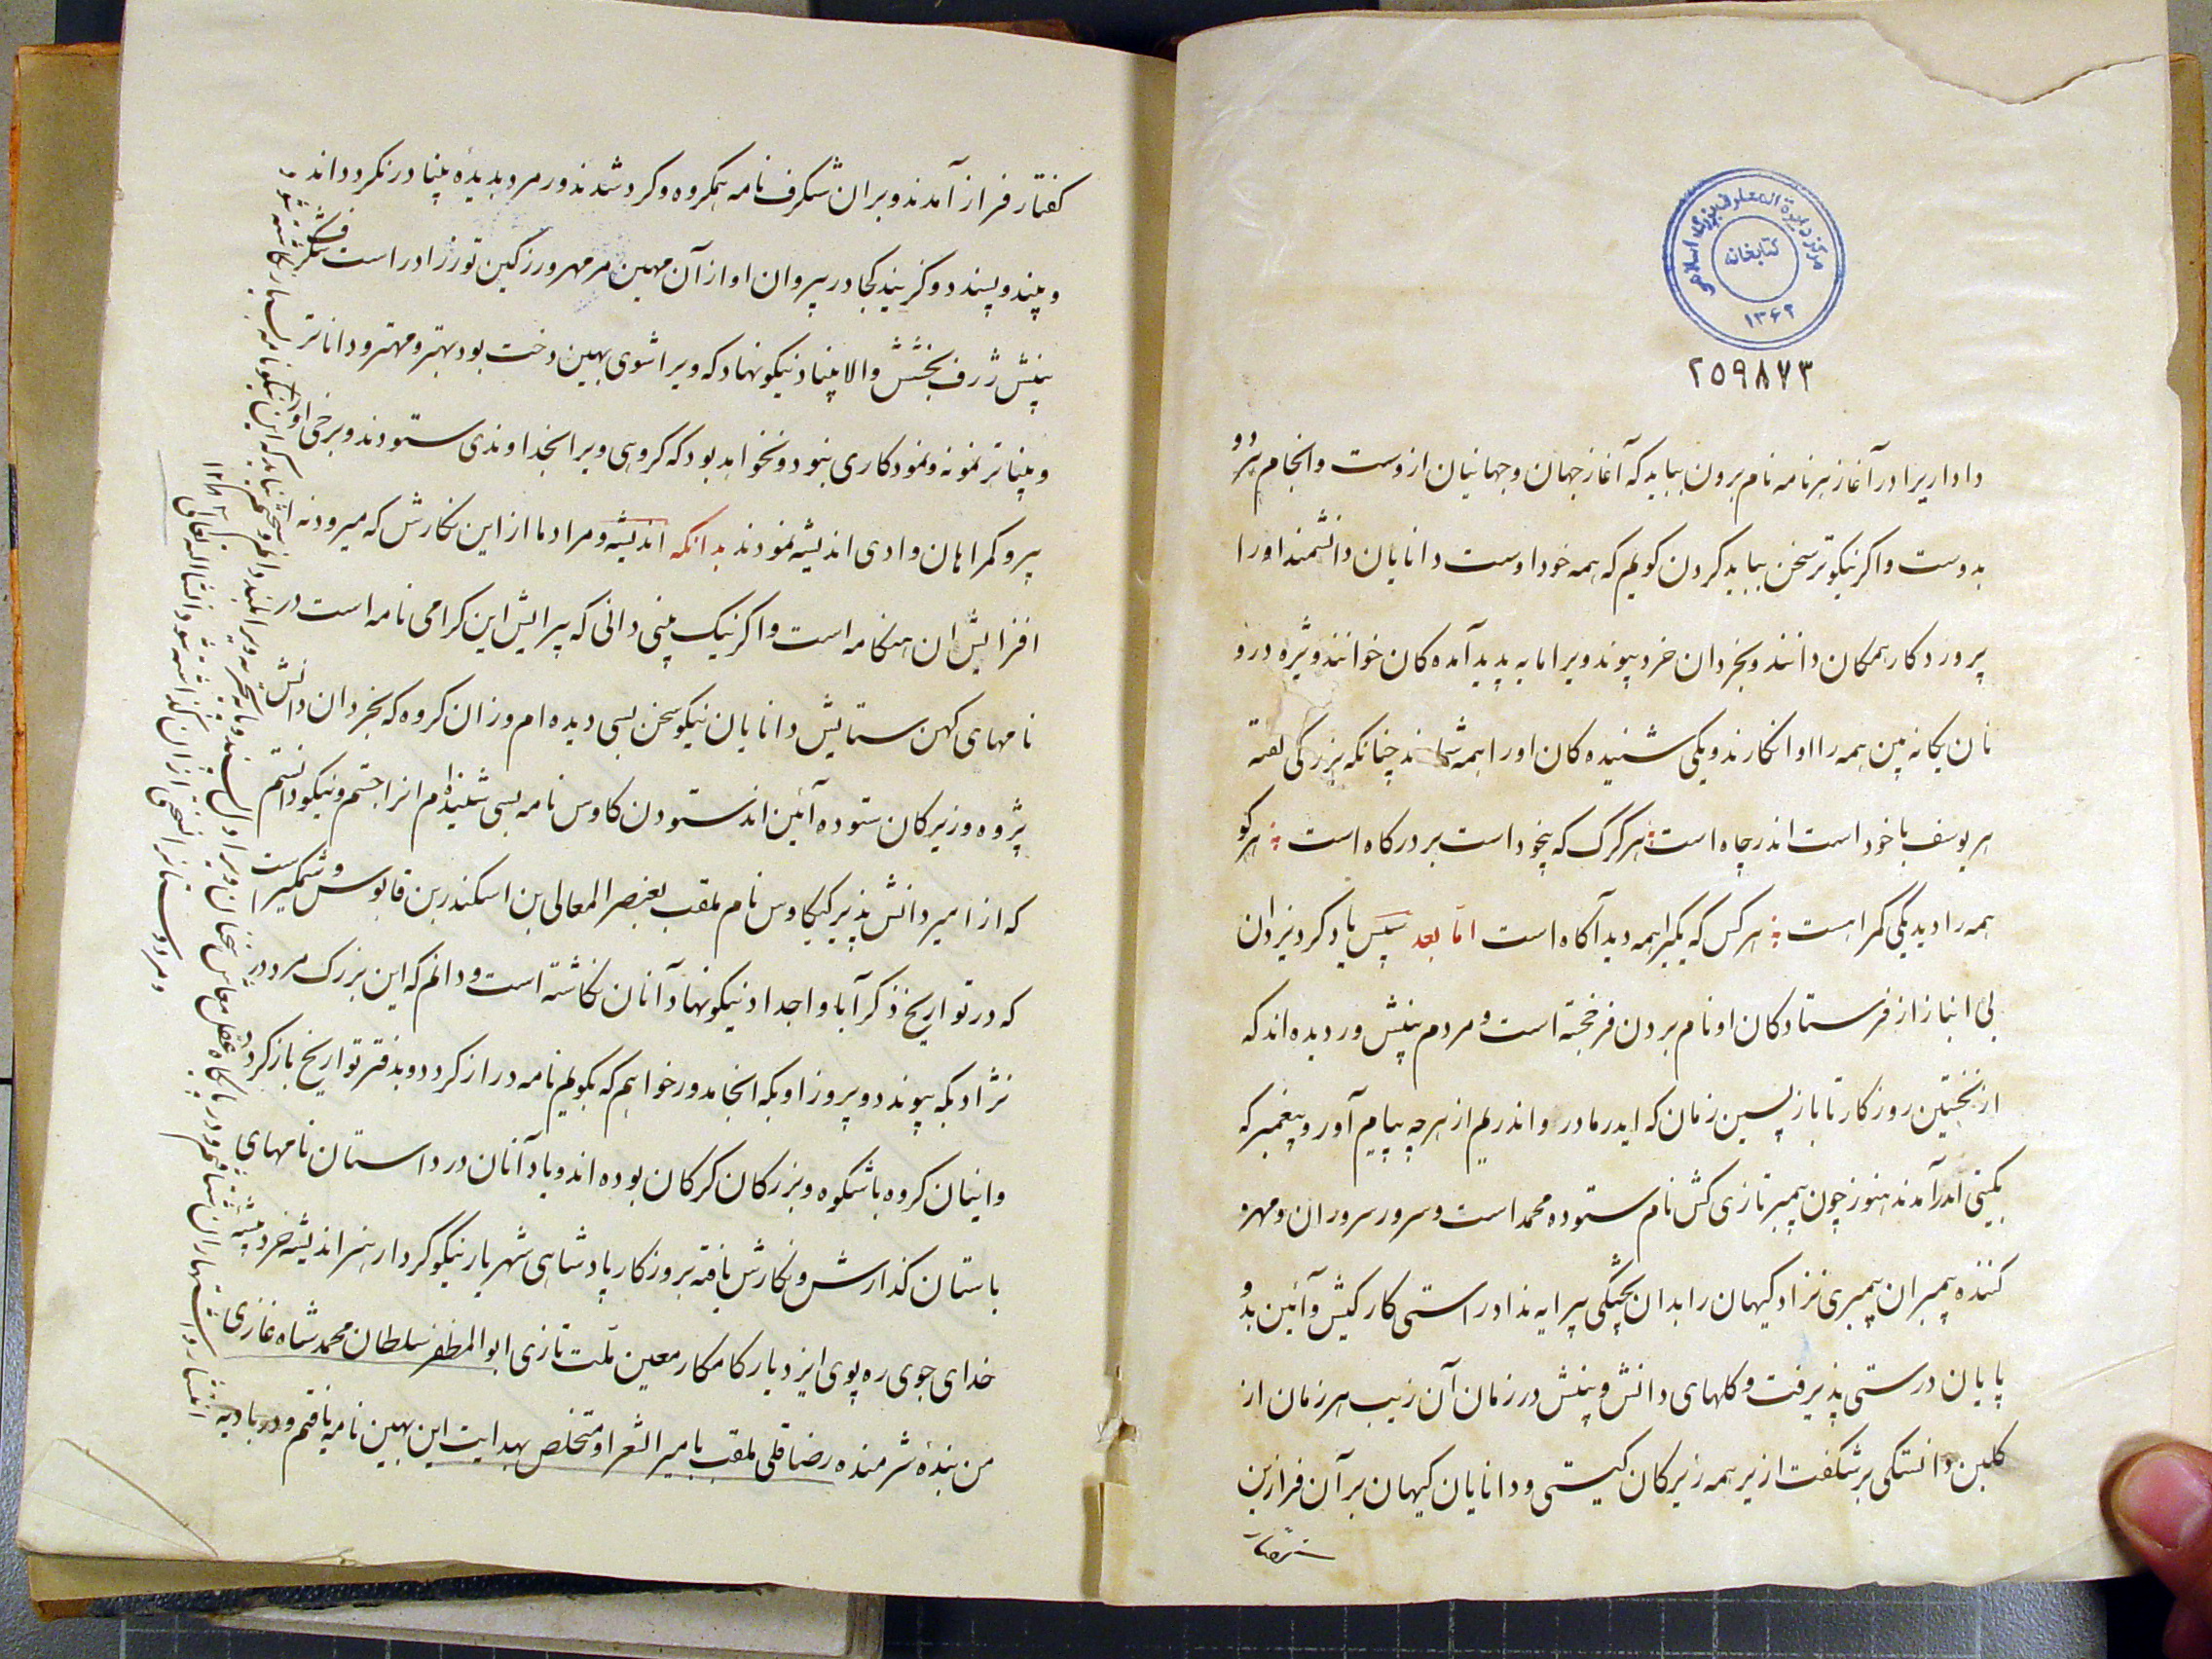 مرکز دایرة المعارف بزرگ اسلامی
کتابخانه
۱۳۶۲
۲۵۹۸۷۳
دادار یرا در آغاز هر نامه نام برون بباید که آغاز جهان و جهانیان ازوست و انجام هر دو
بدوست و اکر نیکوتر سخن بباید کردن کویم که همه خود اوست دانایان دانشمند اورا
پروردکار همکان دانند و بخردان خرد پیوند ویرا مایه پدید آمده کان خوانند ویژه درو
نان یکانه بین همه را او انکارند و یکی شنیده کان اورا همه شناسند چنانکه بزرکی کفته
هر یوسف با خود است اندر چاه است هر کرک که بیخود است بر درکاه است هر کو
همه را دید یکی کمراهست هر کس که یکیرا همه دید آکاه است اما بعد سپس یاد کرد یزدان
بی انباز از فرستادکان او نام بردن فرخجسته است و مردم بینش ور دیده اند که
از نخستین روزکار تا باز پسین زمان که ایدر مادر و اندریم از هر چه پیام آور و پیغمبر که
بکیتی اندر آمدند هنوز چون پیمبر تازی کش نام ستوده محمد است و سرور سروران و مهر
کننده پیمبران پیمبری نزاد کیهان را بدان بجیکی پیرایه نداد راستی کار کیش و آئین بدو
پایان درستی پذیرفت و کلهای دانش و بینش در زمان آن زیب هر زمان از
کلبن دانستکی بر شکفت ازیر همه زیرکان کیستی و دانایان کیهان بر آن فرازین
کفتار فراز آمدند و بران شکرف نامه همکروه و کرد شدند ور مرد بدیده بینا در نکرد داند
و بیند و پسندد و کزیند کجا در پیروان او از آن مهین مر مهرورز کین توز زاد راست شکرف
بینش ژرف بخشش والا بنیاد نیکو نهاد که ویرا شوی بهین دخت بود بهتر و مهتر و داناتر
و بیناتر نمونه و نمودکاری نبود و نخواهد بود که کروهی ویرا بخداوندی ستودند و برخی اورا
پیرو کمراهان وادی اندیشه نمودند بدانکه اندیشه و مراد ما از این نکارش که میرود نه
افزایش ان هنکامه است و اکر نیک بینی دانی که پیرایش این کرامی نامه است در
نامهای کهن ستایش دانایان نیکو سخن بسی دیده ام وزان کروه که بخردان دانش
پژوه و زیرکان ستوده آئین اند ستودن کاوس نامه بسی شنیده ام انرا جستم و نیکو دانستم
که از امیر دانش پذیر کیکاوس نام ملقب بعنصر المعالی بن اسکندر بن قابوس وشمکیر است
که در تواریخ ذکر آبا و اجداد نیکو نهاد آنان نکاشته است و دانم که این بزرک مرد در
نژاد بکه پیوندد و پروز او بکه انجامد ور خواهم که بکویم نامه دراز کردد و بدفتر تواریخ باز کردد
و اینان کروه باشکوه و بزرکان کرکان بوده اند و یاد آنان در داستان نامهای
باستان کذارش و نکارش یافته بروزکار پادشاهی شهریار نیکو کردار هنر اندیشه خرد پیشه
خدای جوی ره پوی ایزد یار کامکار معین ملت تازی ابو المظفر سلطان محمد شاه غازی
من بندهٔ شرمنده رضا قلی ملقب بامیر الشعرا و متخلص بهدایت این بهین نامه یافتم و در بادیه